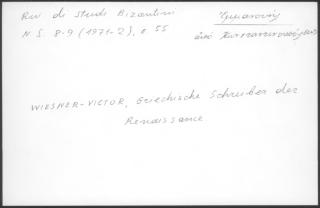 Riv di Studi Bizantini
N S. 8-9 (1971-2), p. 55
ἀπὸ
WIESNER-VICTOR, Griechische Schreiber der
Renaissance